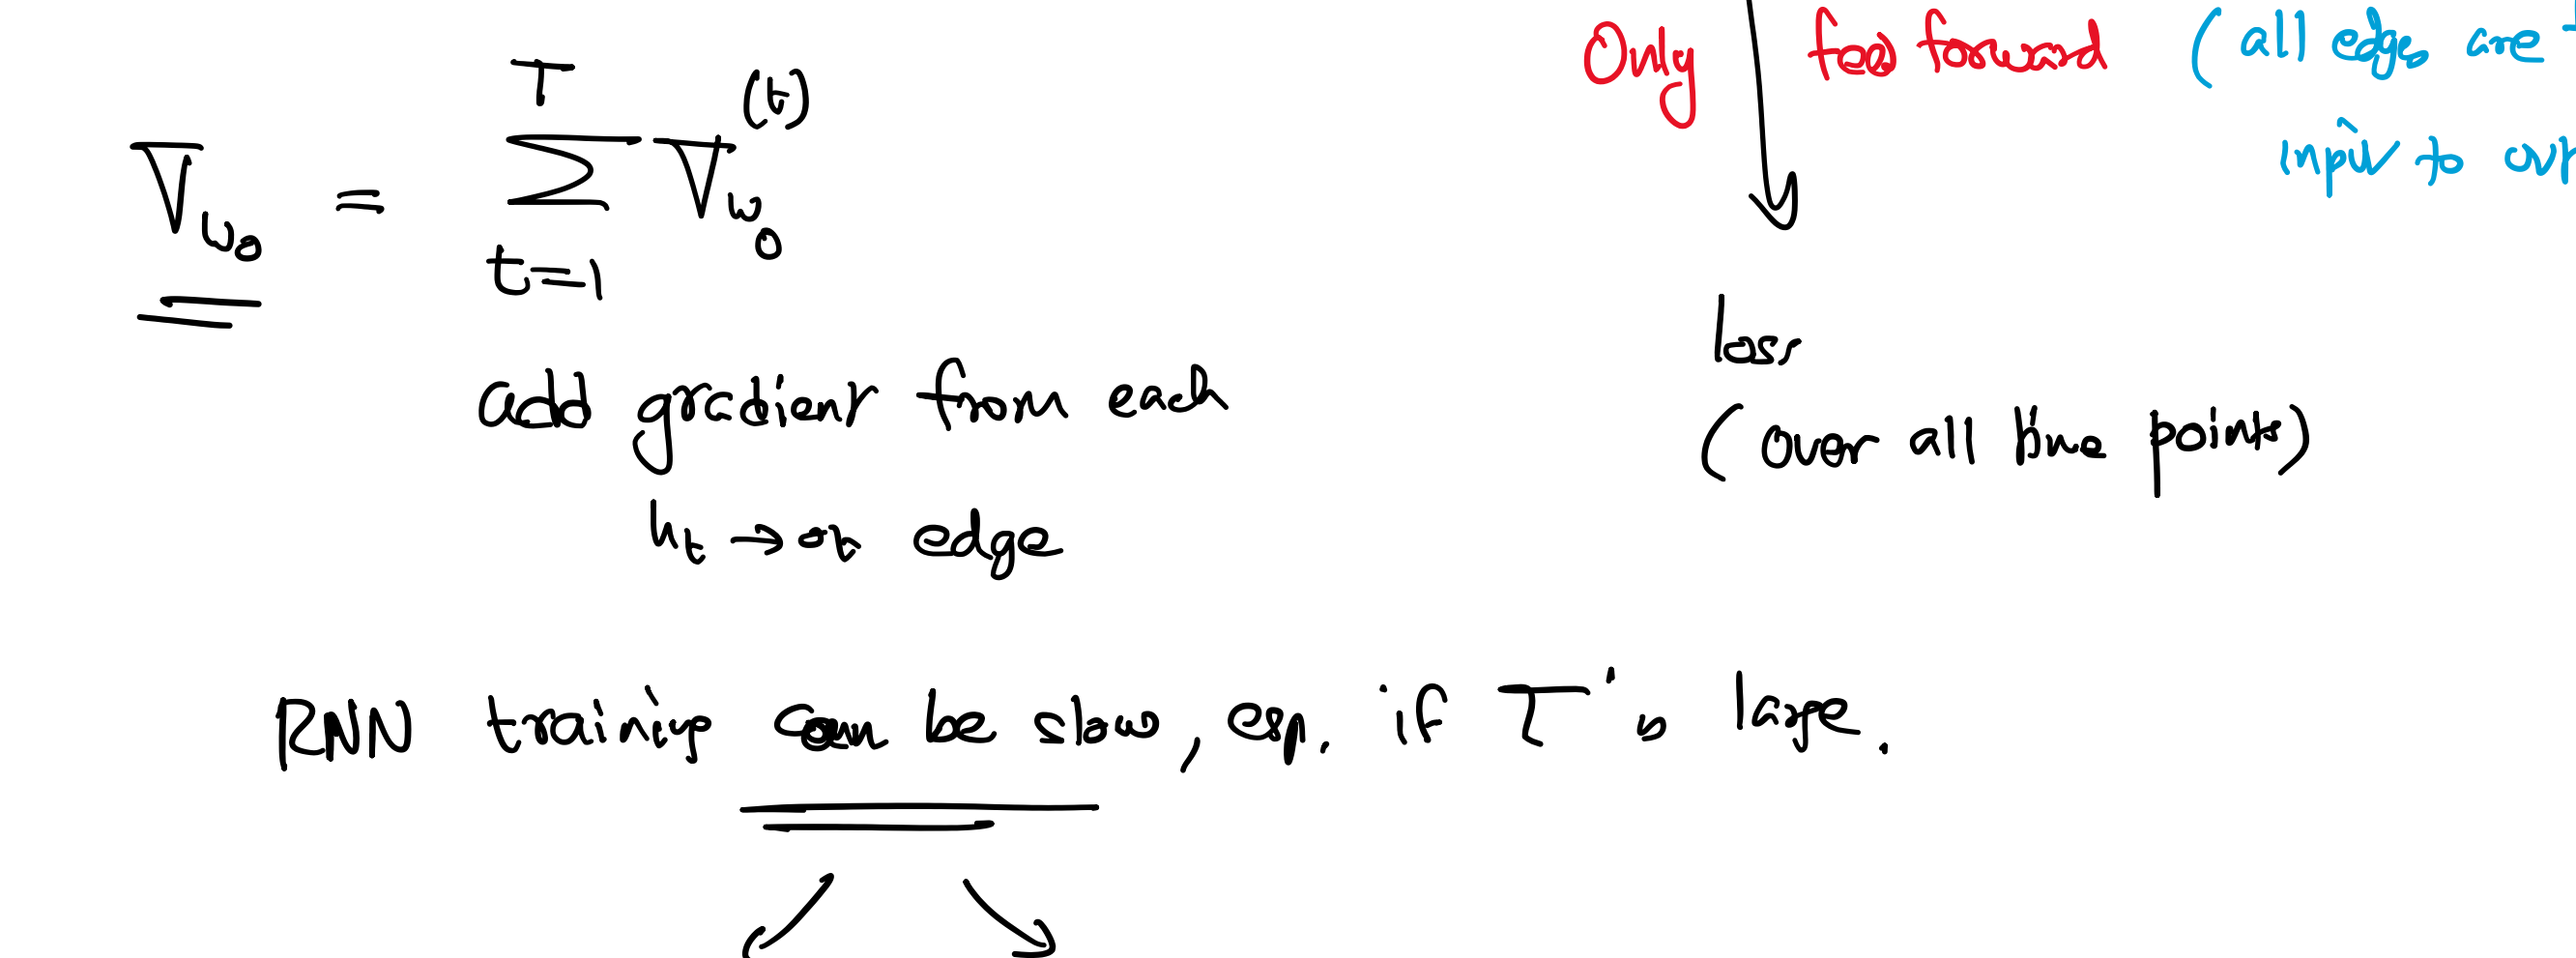 ∇_{w_o} = \sum_{t=1}^{T} ∇_{w_o}^{(t)}
add gradient from each
h_t → o_t edge
Only feed forward (all edges are
input to
loss
(over all time points)
RNN training can be slow, esp. if T is large.